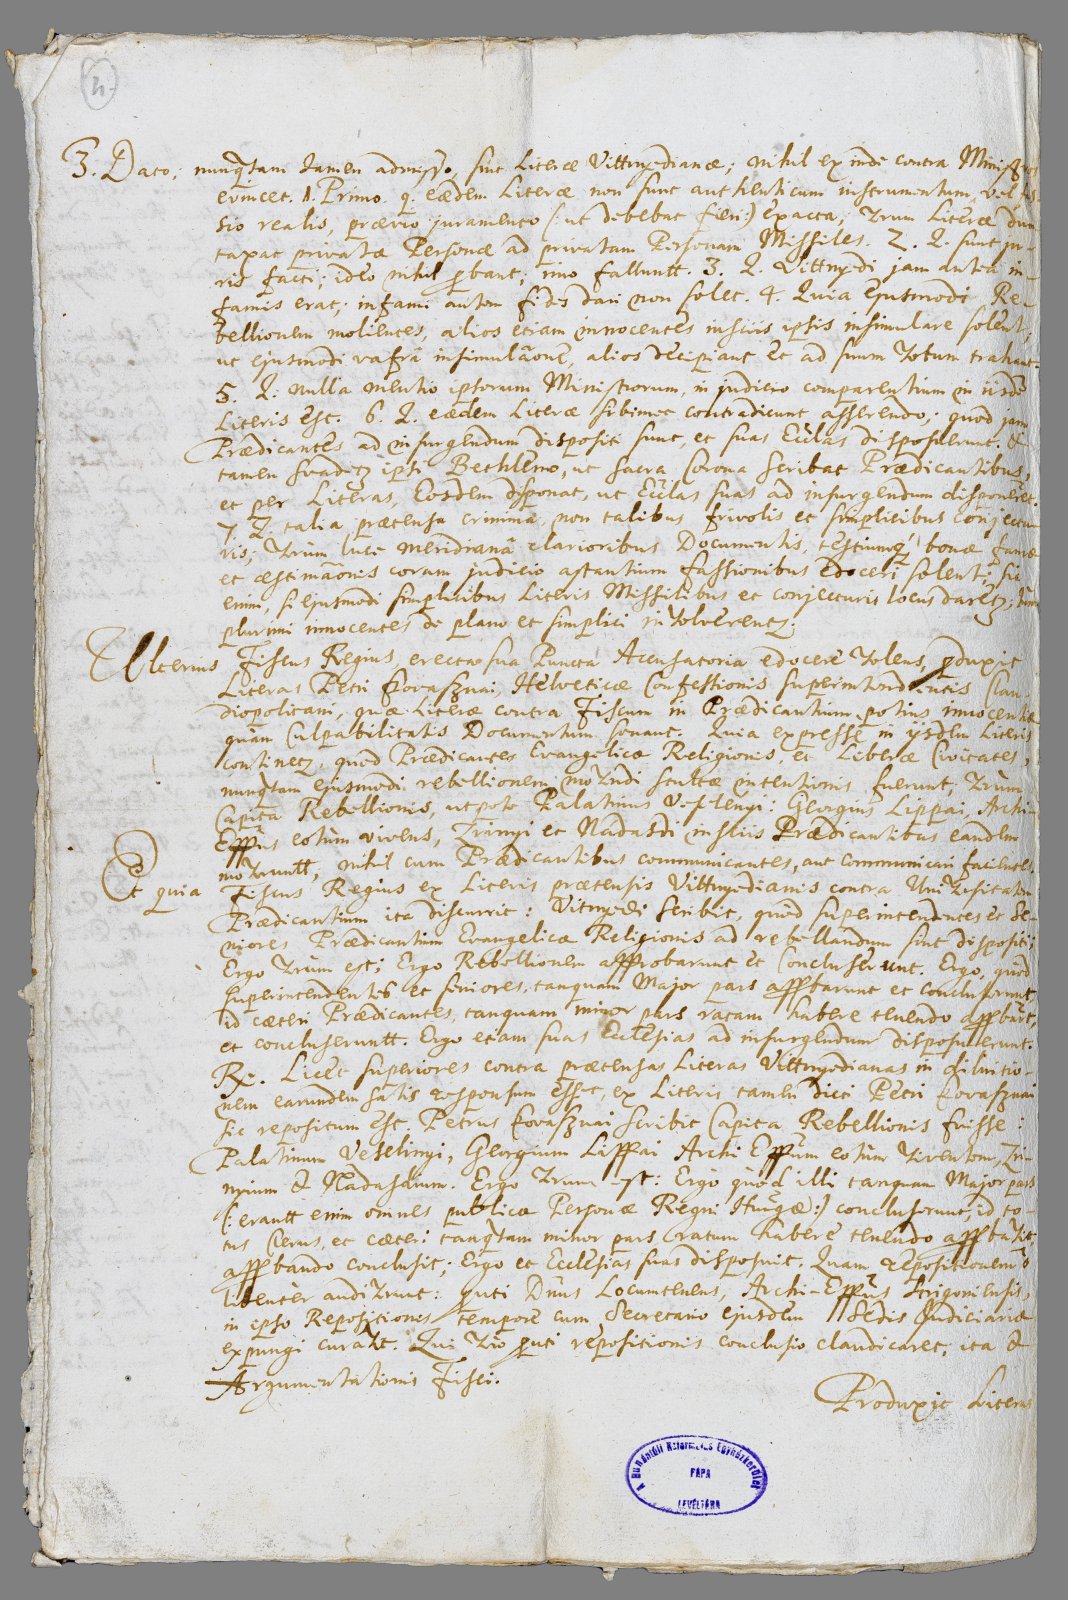 4.
3. Dato, nunq̃tam tamen admisso, sint Literæ Vittnyedianæ; nihil ex inde contra Ministros
evincet. 1. Primo. q. eædem Literæ non sunt authenticum instrumentum, vel
sio realis, prævio juramento (: ut debebat fieri :) exacta; Verum Literæ dun
taxat privatæ Personæ ad privatam Personam Missiles. 2. Q. sunt ju-
ris facti; ideo nihil ꝓbant; imo falluntt. 3. Q. Vittnyedi jam antea in-
famis erat; infami autem fides dari non solet. 4. Quia Ejusmodi Re-
bellionem molientes, alios etiam innocentes insciis ipsis insimulare solent,
ut ejusmodi vafrâ insimulãone, alios decipiant et ad suum Votum trahant.
5. Q. nulla mentio ipsorum Ministrorum, in judicio comparentium in iisdẽ
Literis est. 6. Q. eædem Literæ sibimet contradicunt asserendo; quod jam
Prædicantes ad insurgendum dispositi sunt, et suas Ecclãs disposuerunt. &
tamen svadetz ipsi Bethlemo, ut sacra Corona scribat Prædicantibus,
et per Literas, Eosdem disponat, ut Ecclãs suas ad insurgendum disponerẽt.
7. Q. talia prætensa crimina, non talibus frivolis et simplicibus conjectu-
ris; Verùm luce meridianâ clarioribus Documentis, testiumq̃ bonæ famæ
et æstimãonis coram judicio astantium fassionibus edoceri solent; sic
enim, si ejusmodi simplicibus Literis Missilibus et conjecturis locus daretz,
plurimi innocentes de plano et simplici involverentz.
Ulterius Fiscus Regius, erecta sua Puncta Accusatoria edocere volens, ꝓduxit
Literas Petri Kovasznai, Helveticæ Confessionis superintendentis Clau-
diopolitani, quæ Literæ contra Fiscum in Prædicantium potius innocentiæ
quàm Culpabilitatis Documentum sonant. Quia expressè in ijsdem Literis
continetz, quod Prædicantes Evangelicæ Religionis, et Liberæ Civitates,
nunq̃tam ejusmodi rebellionem movendi scultæ intentionis fuerunt; Verùm
Capita Rebellionis, utpote Palatinus Veselengi: Georgius Lippai, Archi-
Eppũs eotùm vivens, Zrinyi et Nadasdi, insciis Prædicantibus eandem
moveruntt, nihil cum Prædicantibus communicantes, aut communicari facientes.
Et quia Fiscus Regius ex Literis prætensis Vittnyedianis contra Universitatem
Prædicantium ita discurrit: Vitnyedi scribit, quòd superintendentes et Se-
niores Prædicantium Evangelicæ Religionis ad rebellandum sint dispositi;
Ergo Verum est; Ergo Rebellionem approbarunt et Concluserunt. Ergo, quòd
superintendentes et seniores, tanquam Major pars appbarunt et concluserunt,
id cæteri Prædicantes, tanquam minor pars ratam habere tenendo appbãrt,
et concluseruntt. Ergo etiam suas Ecclesias ad insurgendum disposuerunt.
Rx. Licèt superiores contra prætensas Literas Vittnyedianas in dilutio-
nem earundem satis responsum esset, ex Literis tamen dicti Petri Kovasznai
sic repositum est. Petrus Kovasznai scribit Capita Rebellionis fuisse:
Palatinum Veselinyi, Georgium Lippai Archi Eppũm eotùm viventem, Zri-
nyium & Nadasdium. Ergo Verum est: Ergò quòd illi tanquam Major pars
(: erantt enim omnes publicæ Personæ Regni Hung̃æ :) concluserunt, id to-
tus Clerus, et cæteri tanq̃tam minor pars ratum habere tenendo appbavit
appbando conclusit; Ergo et Ecclesias suas disposuit. Quam repositionem õ
libenter audiverunt: ꝓuti Dñus Locumtenens, Archi-Eppũs Strigoniensis,
in ipso Repositionis tempore cum Secretario ejusdem Sedis Judiciariæ
expungi curavit. Qui Vero ꝓuti repositionis conclusio claudicaret, ita &
Argumentationis Fisci.
Produxit Literas
A Dunántúli Református Egyházkerület
PÁPA
LEVÉLTÁRA